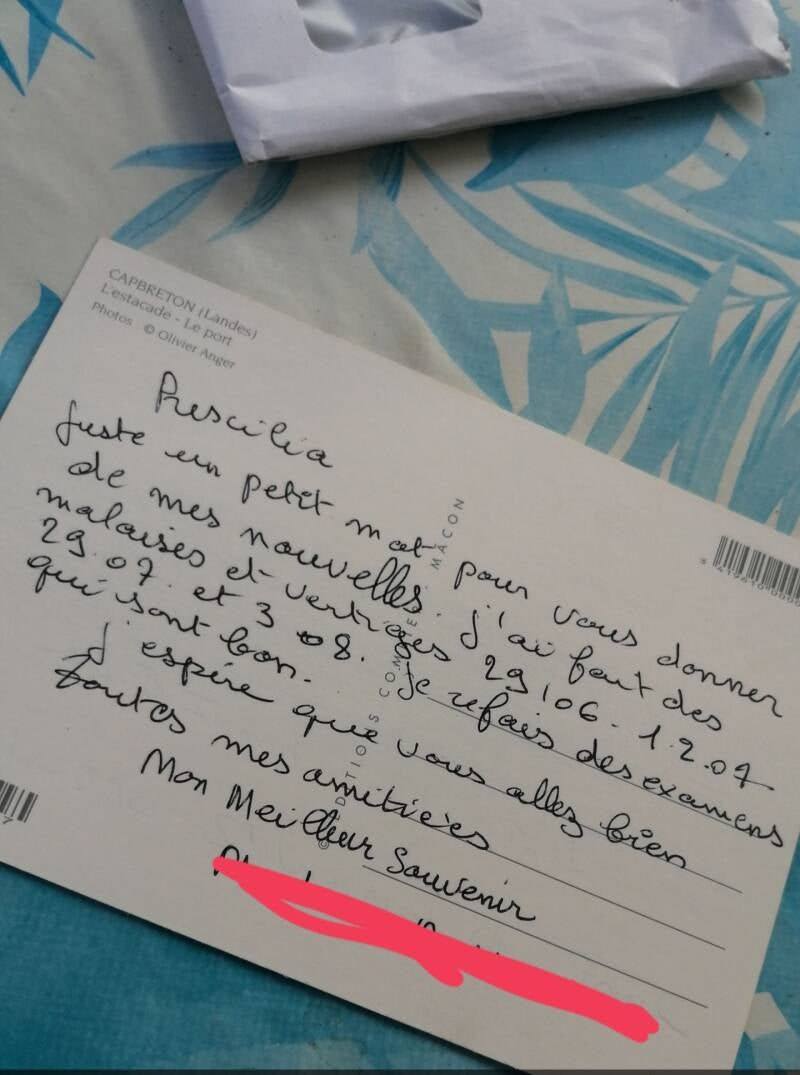 CAPBRETON (Landes)
L'estacade - Le port
Photos : © Olivier Anger
Prescilia
Juste un petit mot pour vous donner
de mes nouvelles. J'ai fait des
malaises et vertiges 29/06 - 1.2.07
29.07. et 3 08. Je refais des examens
qui sont bon.
J'espère que vous allez bien
toutes mes amitiées
Mon Meilleur Souvenir
MÂCON